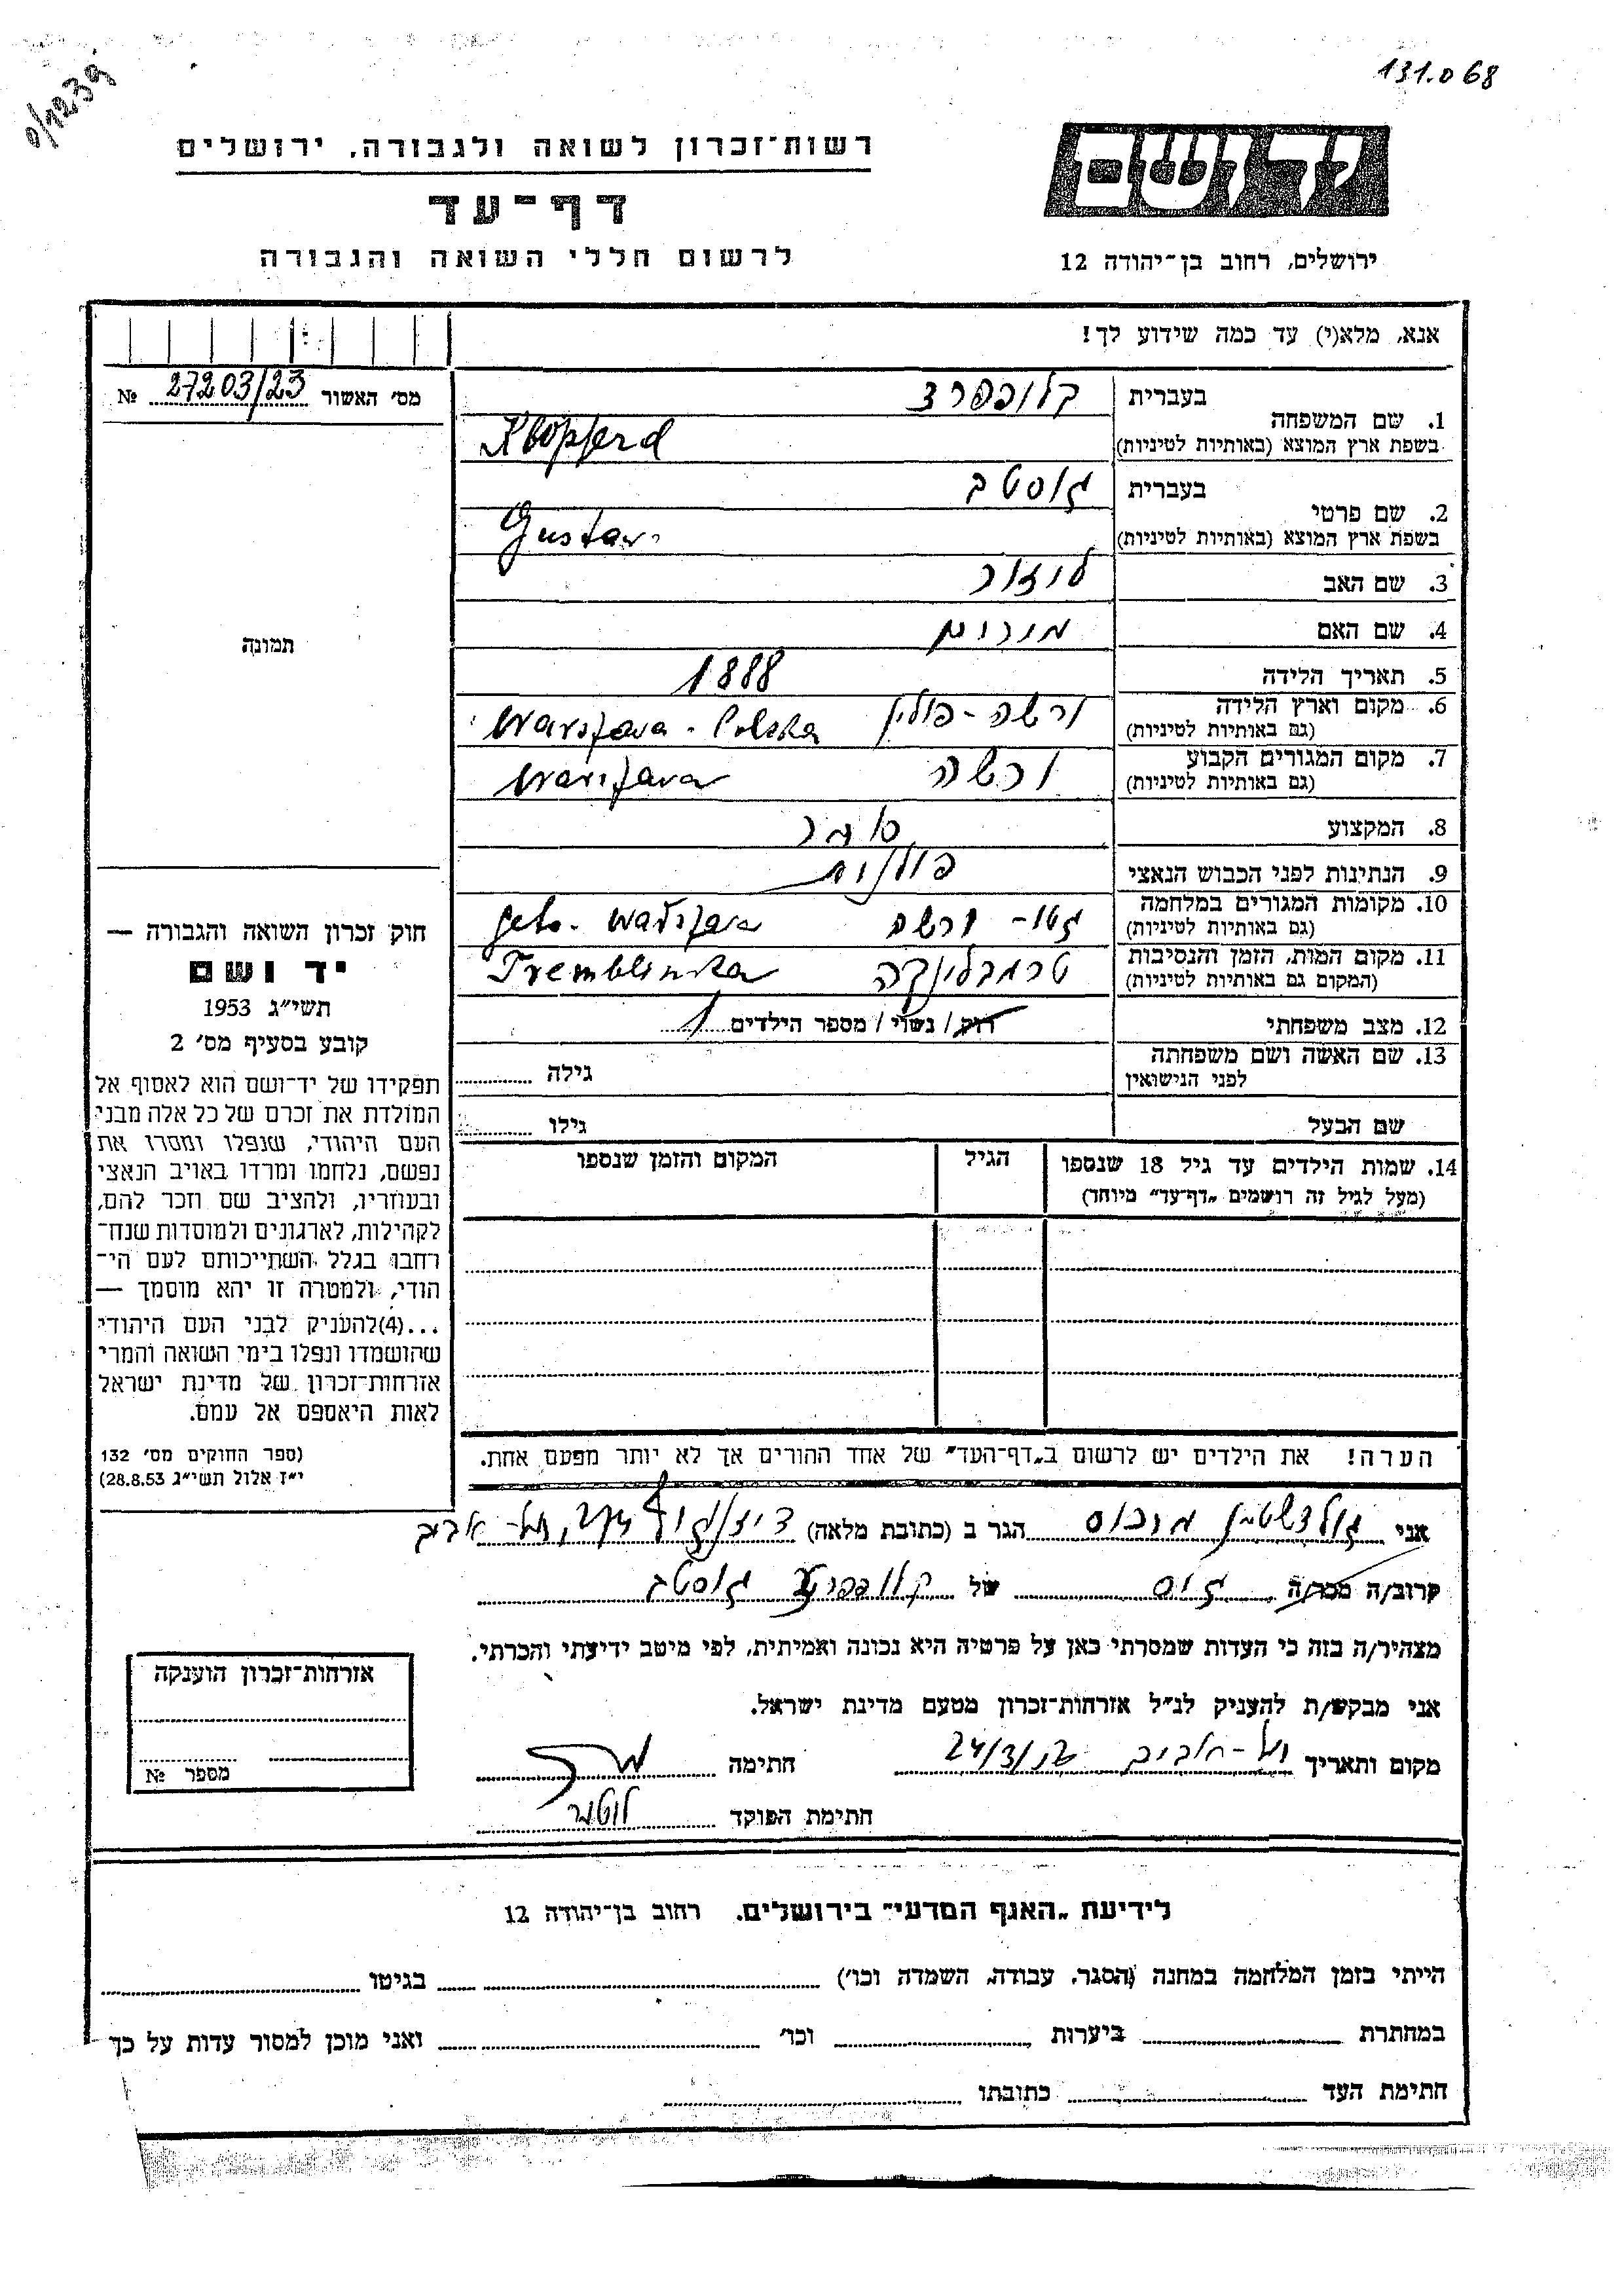 131.068
0/1239
רשות־זכרון לשואה ולגבורה, ירושלים
יד ושם
דף־עד
לרשום חללי השואה והגבורה
ירושלים, רחוב בן־יהודה 12
אנא, מלא(י) עד כמה שידוע לך!
מס׳ האשור 27203/23 №
תמונה
1. שם המשפחה בעברית קלופפרד
בשפת ארץ המוצא (באותיות לטיניות) Klopferd
2. שם פרטי בעברית גוסטב
בשפת ארץ המוצא (באותיות לטיניות) Gustav
3. שם האב
4. שם האם מרים
5. תאריך הלידה 1888
6. מקום וארץ הלידה ורשה - פולין Warszawa - Polska
(גם באותיות לטיניות)
7. מקום המגורים הקבוע ורשה Warszawa
(גם באותיות לטיניות)
8. המקצוע סוחר
9. הנתינות לפני הכבוש הנאצי פולנית
10. מקומות המגורים במלחמה גטו - ורשה geto - Warszawa
(גם באותיות לטיניות)
11. מקום המות, הזמן והנסיבות טרמבלינקה Tremblinka
(המקום גם באותיות לטיניות)
12. מצב משפחתי רווק / נשוי / מספר הילדים 1
13. שם האשה ושם משפחתה
לפני הנישואין גילה
שם הבעל גילו
14. שמות הילדים עד גיל 18 שנספו הגיל המקום והזמן שנספו
(מעל לגיל זה רושמים „דף־עד״ מיוחד)
הערה! את הילדים יש לרשום ב„דף־העד״ של אחד ההורים אך לא יותר מפעם אחת.
חוק זכרון השואה והגבורה —
יד ושם
תשי״ג 1953
קובע בסעיף מס׳ 2
תפקידו של יד־ושם הוא לאסוף אל
המולדת את זכרם של כל אלה מבני
העם היהודי, שנפלו ומסרו את
נפשם, נלחמו ומרדו באויב הנאצי
ובעוזריו, ולהציב שם וזכר להם,
לקהילות, לארגונים ולמוסדות שנח־
רבו בגלל השתייכותם לעם הי־
הודי, ולמטרה זו יהא מוסמך —
...(4)להעניק לבני העם היהודי
שהושמדו ונפלו בימי השואה והמרי
אזרחות־זכרון של מדינת ישראל
לאות היאספם אל עמם.
(ספר החוקים מס׳ 132
י״ז אלול תשי״ג 28.8.53)
אני גולדשטין מרכוס הגר ב (כתובת מלאה) דיזנגוף תל-אביב
קרוב/ה מכר/ה גיס של קלופפרד גוסטב
מצהיר/ה בזה כי העדות שמסרתי כאן על פרטיה היא נכונה ואמיתית, לפי מיטב ידיעתי והכרתי.
אני מבקש/ת להעניק לנ״ל אזרחות־זכרון מטעם מדינת ישראל.
מקום ותאריך תל-אביב 24/3/ חתימה
חתימת הפוקד
אזרחות־זכרון הוענקה
מספר №
לידיעת „האגף המדעי״ בירושלים. רחוב בן־יהודה 12
הייתי בזמן המלחמה במחנה (הסגר, עבודה, השמדה וכו׳) בגיטו
במחתרת ביערות וכו׳ ואני מוכן למסור עדות על כך
חתימת העד כתובתו